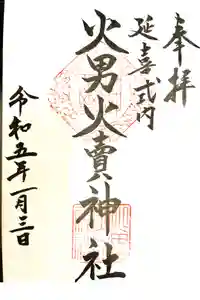 奉拝
延喜式内
火男火賣神社
令和五年一月三日